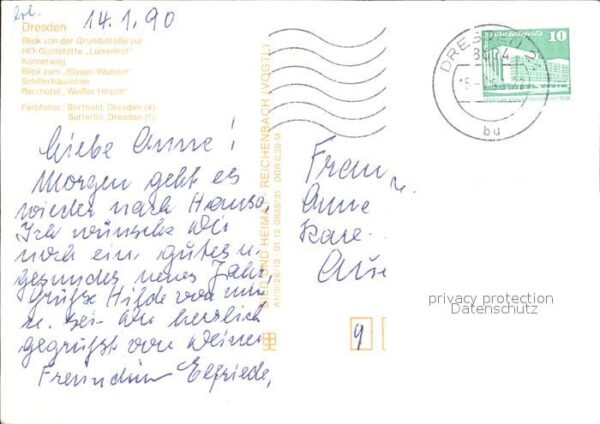 14.1.90
Dresden
Blick von der Grundstraße zur
HO-Gaststätte „Luisenhof"
Körnerweg
Blick zum „Blauen Wunder"
Schillerhäuschen
Parkhotel „Weißer Hirsch"
Farbfotos: Berthold, Dresden (4)
Bütterlin, Dresden (1)
Liebe Anne!
Morgen geht es
wieder nach Hause,
Ich wünsche dir
noch ein gutes u.
gesundes neues Jahr,
Grüße Hilde von mir
u. sei du herzlich
gegrüßt von deiner
Freundin Elfriede,
BILD UND HEIMAT REICHENBACH (VOGTL)
01 12 0835/31 DDR 0,20 M
DRESDEN
8024
bu
10
Frau
Anne
privacy protection
Datenschutz
9